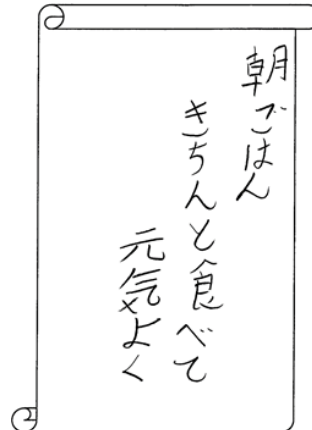 朝ごはん
きちんと食べて
元気よく